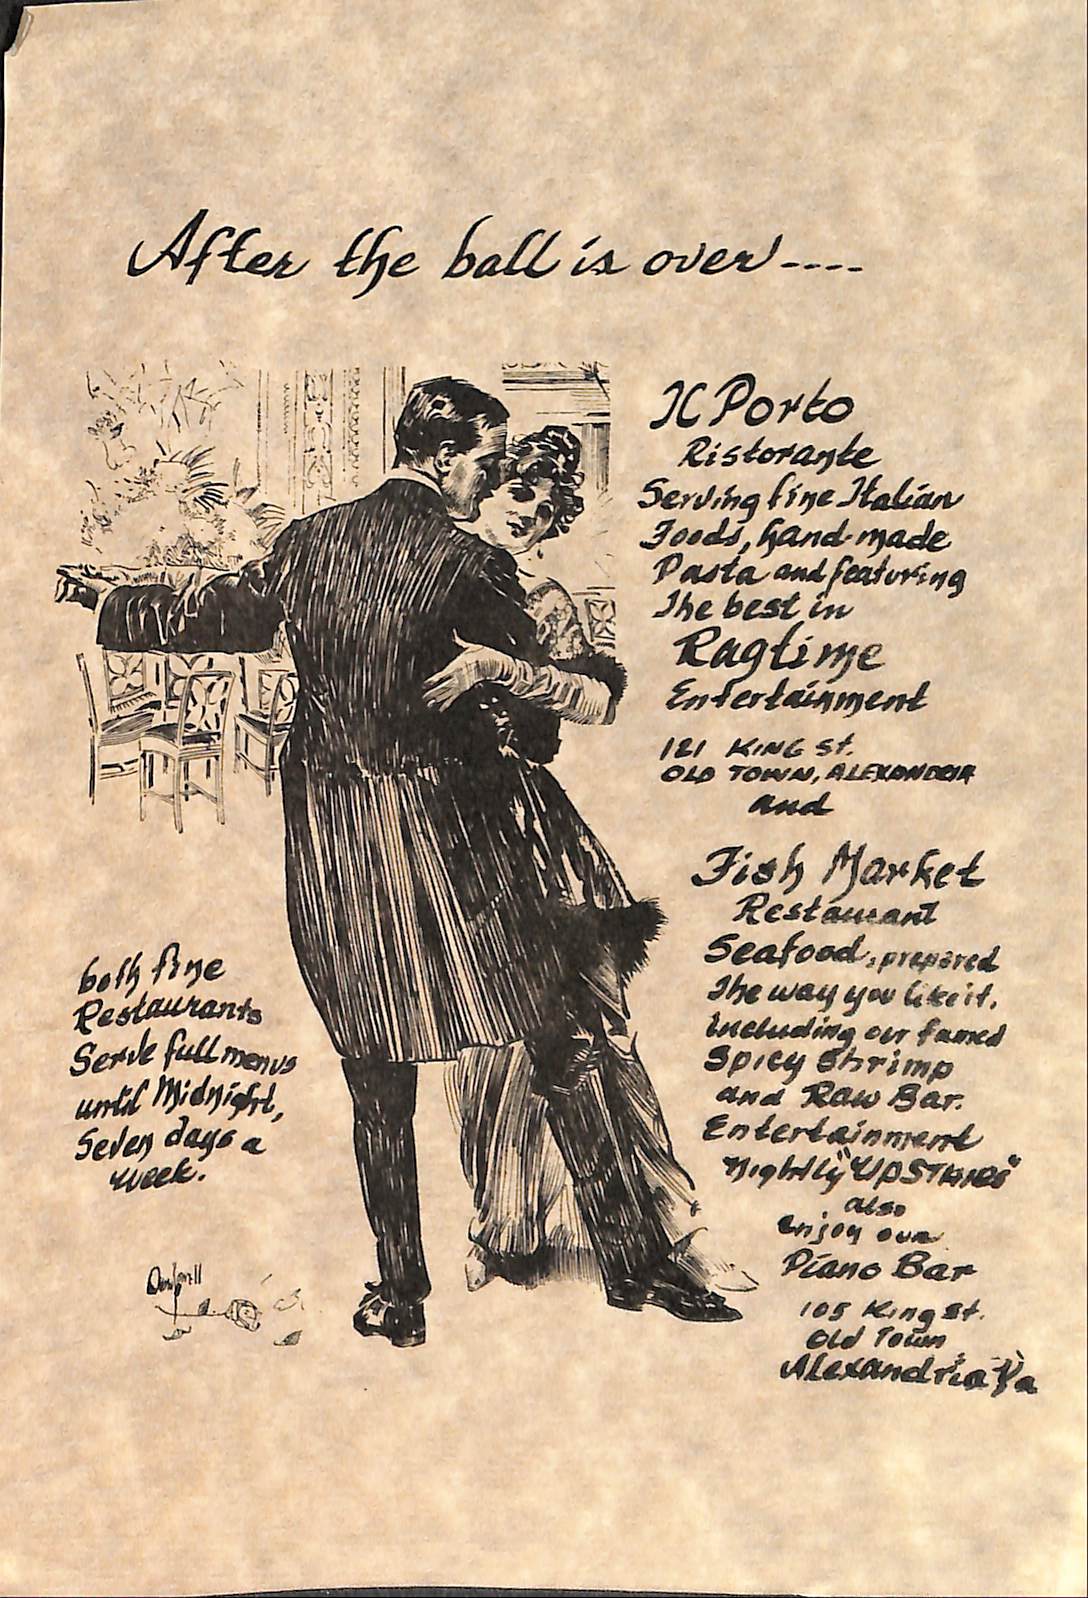 After the ball is over----
Il Porto
Ristorante
Serving fine Italian
Foods, hand-made
Pasta and featuring
The best in
Ragtime
Entertainment
121 KING St.
OLD TOWN, ALEXANDRIA
and
Fish Market
Restaurant
Seafood, prepared
The way you like it,
including our famed
Spicy Shrimp
and Raw Bar.
Entertainment
Nightly "UPSTAIRS"
also
enjoy our
Piano Bar
105 King St.
Old Town
Alexandria Va
both fine
Restaurants
Serve full menus
until Midnight,
Seven days a
week.